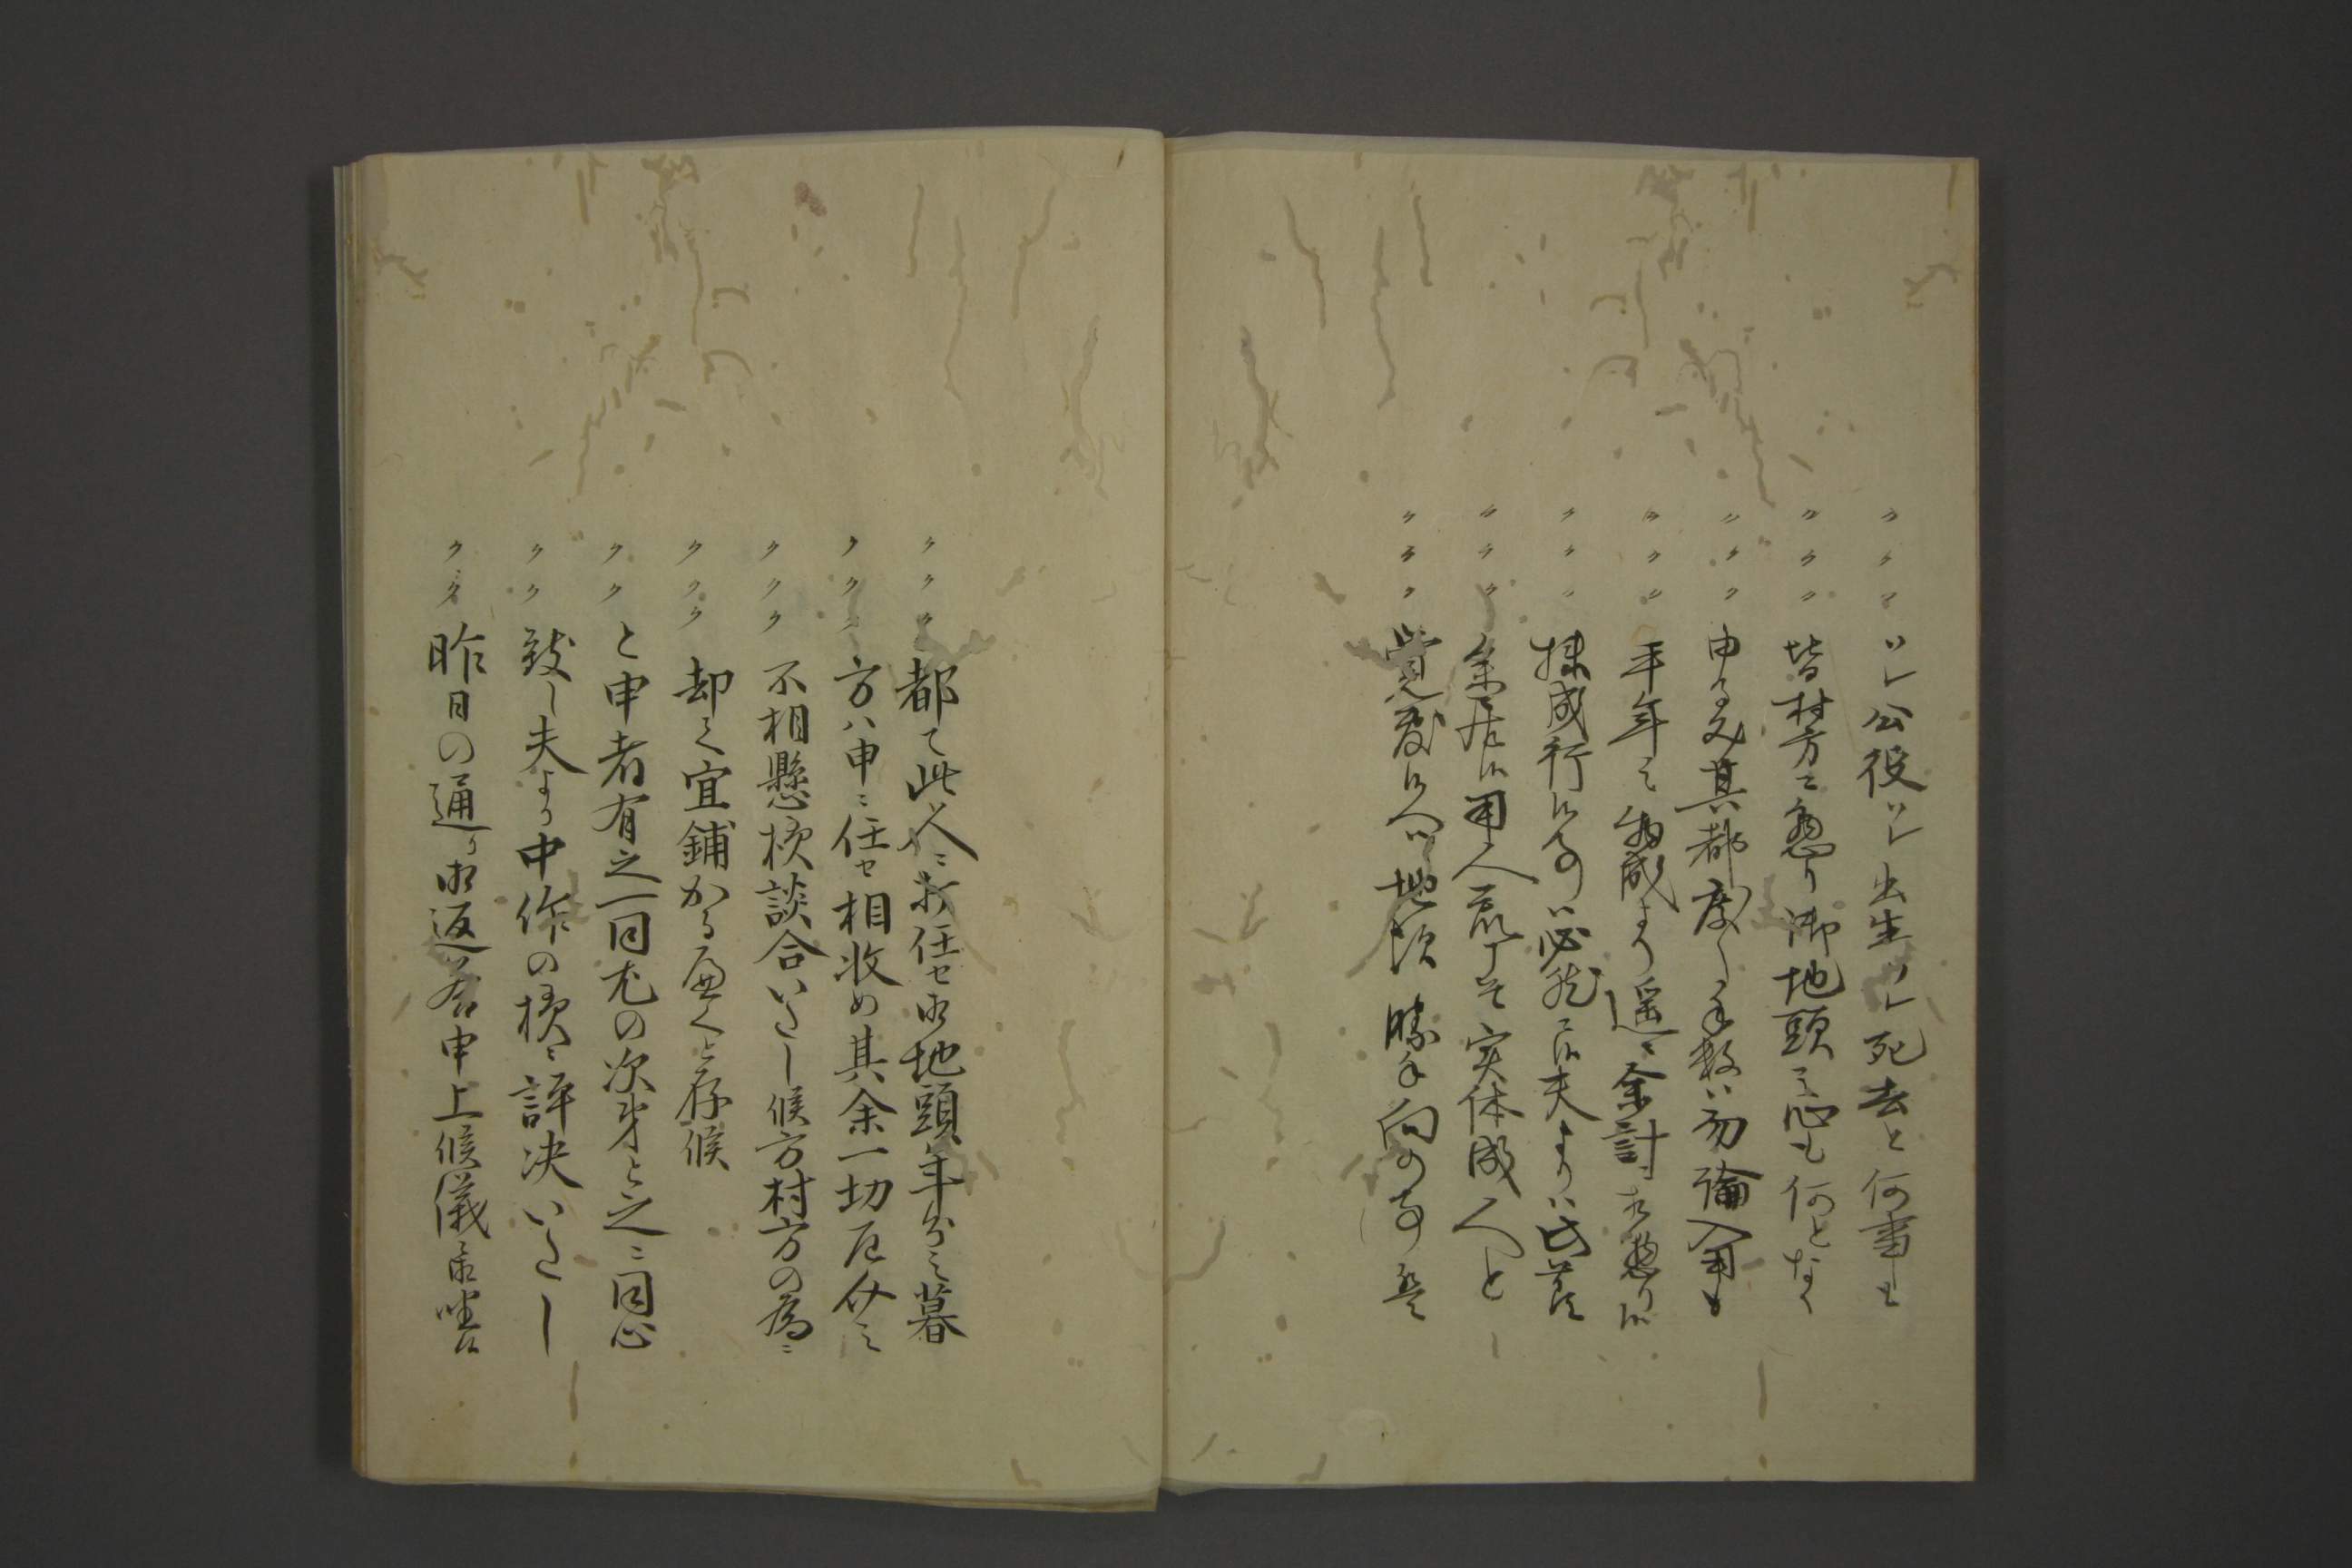 〃〃〃ソレ公役ソレ出生ソレ死去と何事も
〃〃〃皆村方え懸り御地頭え心も何となく
〃〃〃申る又其都度之手数ハ勿論入用も
〃〃〃平年之物成より遥ニ余計相懸り候
〃〃〃様成行候而ハ必然ニ候夫よりハ此節
〃〃〃余慶候用人荒丁そ実体成人と
〃〃〃覚悟候ヘハ地頭勝手向の事共
〃〃〃都て此人ニ打任セ御地頭年分之暮
〃〃〃方ハ申ニ任セ相収め其余一切厄介え
〃〃〃不相懸様談合いたし候方村方の為ニ
〃〃〃却て宜鋪かる扁くと存候
〃〃と申者有之一同尤の次第と之ニ同心
〃〃致し夫より中作の様ニ評決いたし
〃〃昨日の通り御返答申上候儀ニ御坐候